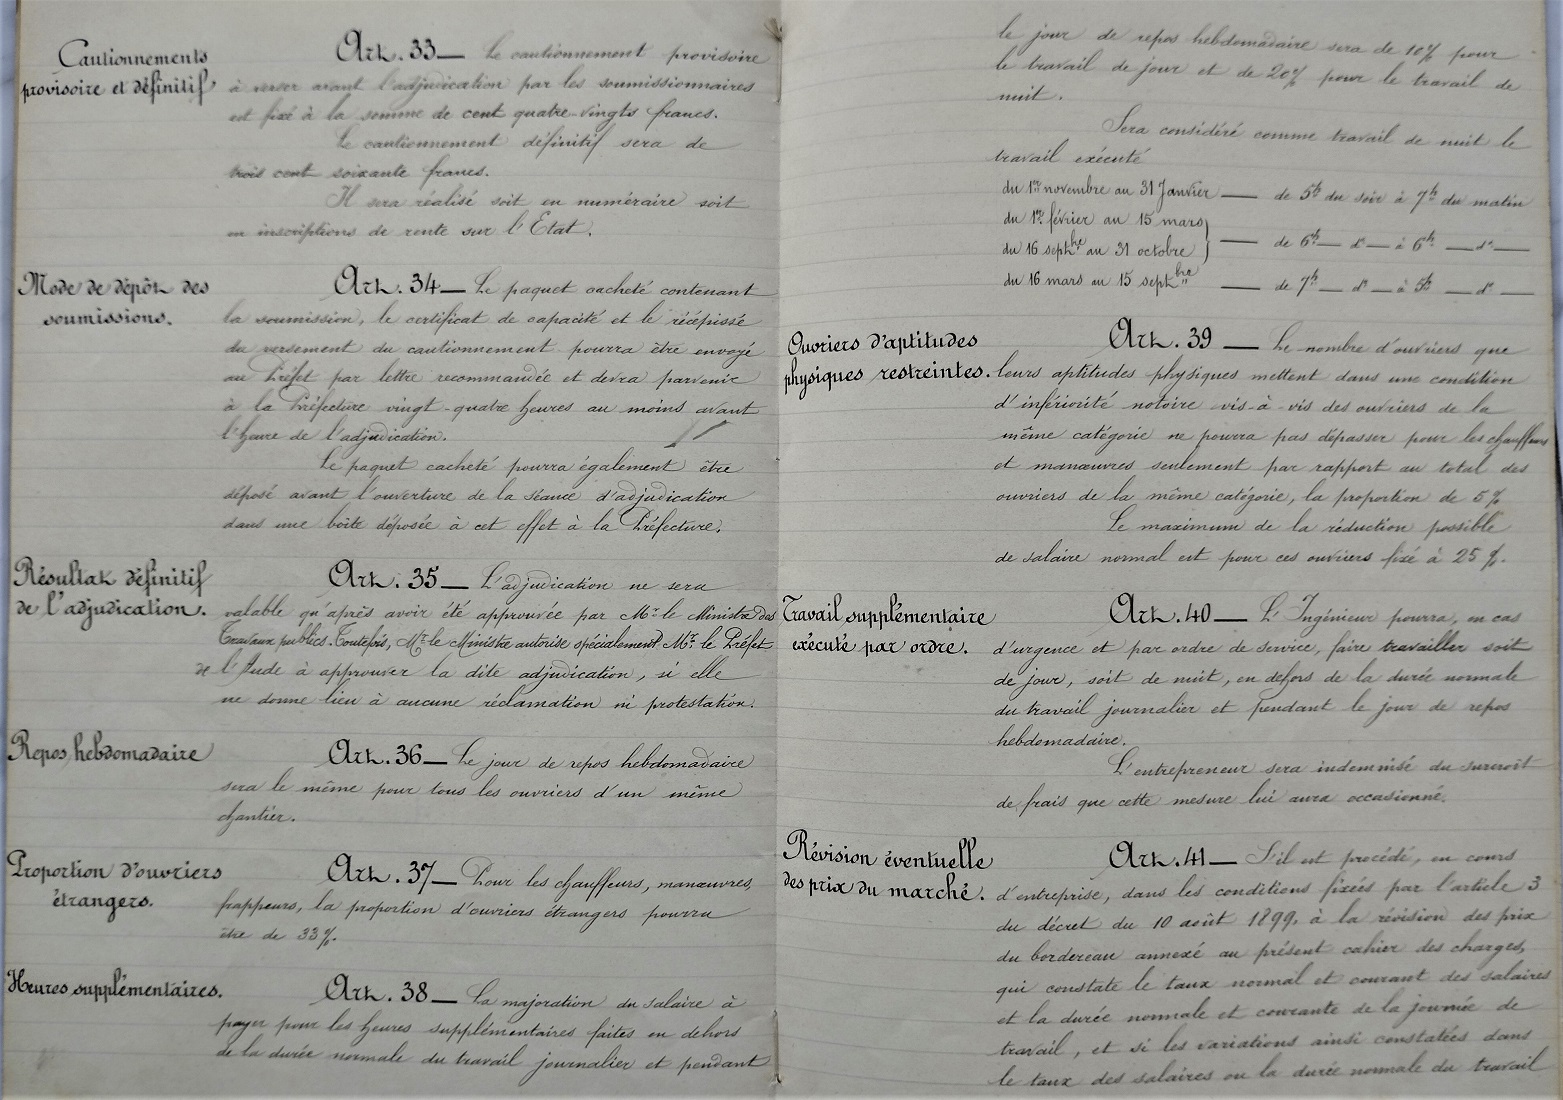 Cautionnements
provisoire et définitif
Art. 33 — Le cautionnement provisoire
à verser avant l'adjudication par les soumissionnaires
est fixé à la somme de cent quatre-vingts francs.
Le cautionnement définitif sera de
trois cent soixante francs.
Il sera réalisé soit en numéraire soit
en inscriptions de rente sur l'Etat.
Mode de dépôt des
soumissions.
Art. 34 — Le paquet cacheté contenant
la soumission, le certificat de capacité et le récépissé
du versement du cautionnement pourra être envoyé
au Préfet par lettre recommandée et devra parvenir
à la Préfecture vingt-quatre heures au moins avant
l'heure de l'adjudication.
Le paquet cacheté pourra également être
déposé avant l'ouverture de la séance d'adjudication
dans une boîte déposée à cet effet à la Préfecture.
Résultat définitif
de l'adjudication.
Art. 35 — L'adjudication ne sera
valable qu'après avoir été approuvée par Mr. le Ministre des
Travaux publics. Toutefois, Mr. le Ministre autorise spécialement Mr. le Préfet
de l'Aude à approuver la dite adjudication, si elle
ne donne lieu à aucune réclamation ni protestation.
Repos hebdomadaire
Art. 36 — Le jour de repos hebdomadaire
sera le même pour tous les ouvriers d'un même
chantier.
Proportion d'ouvriers
étrangers.
Art. 37 — Pour les chauffeurs, manœuvres,
frappeurs, la proportion d'ouvriers étrangers pourra
être de 33%.
Heures supplémentaires.
Art. 38 — La majoration du salaire à
payer pour les heures supplémentaires faites en dehors
de la durée normale du travail journalier et pendant
le jour de repos hebdomadaire sera de 10% pour
le travail de jour et de 20% pour le travail de
nuit.
Sera considéré comme travail de nuit le
travail exécuté
du 1er novembre au 31 Janvier — de 5h du soir à 7h du matin
du 1er février au 15 mars
du 16 septbre au 31 octobre } — de 6h — do — à 6h — do —
du 16 mars au 15 septbre — de 7h — do — à 5h — do —
Ouvriers d'aptitudes
physiques restreintes.
Art. 39 — Le nombre d'ouvriers que
leurs aptitudes physiques mettent dans une condition
d'infériorité notoire vis-à-vis des ouvriers de la
même catégorie ne pourra pas dépasser pour les chauffeurs
et manœuvres seulement par rapport au total des
ouvriers de la même catégorie, la proportion de 5%
Le maximum de la réduction possible
de salaire normal est pour ces ouvriers fixé à 25%.
Travail supplémentaire
exécuté par ordre.
Art. 40 — L'Ingénieur pourra, en cas
d'urgence et par ordre de service, faire travailler soit
de jour, soit de nuit, en dehors de la durée normale
du travail journalier et pendant le jour de repos
hebdomadaire.
L'entrepreneur sera indemnisé du surcroit
de frais que cette mesure lui aura occasionné.
Révision éventuelle
des prix du marché.
Art. 41 — S'il est procédé, en cours
d'entreprise, dans les conditions fixées par l'article 3
du décret du 10 août 1899, à la révision des prix
du bordereau annexé au présent cahier des charges,
qui constate le taux normal et courant des salaires
et la durée normale et courante de la journée de
travail, et si les variations ainsi constatées dans
le taux des salaires ou la durée normale du travail